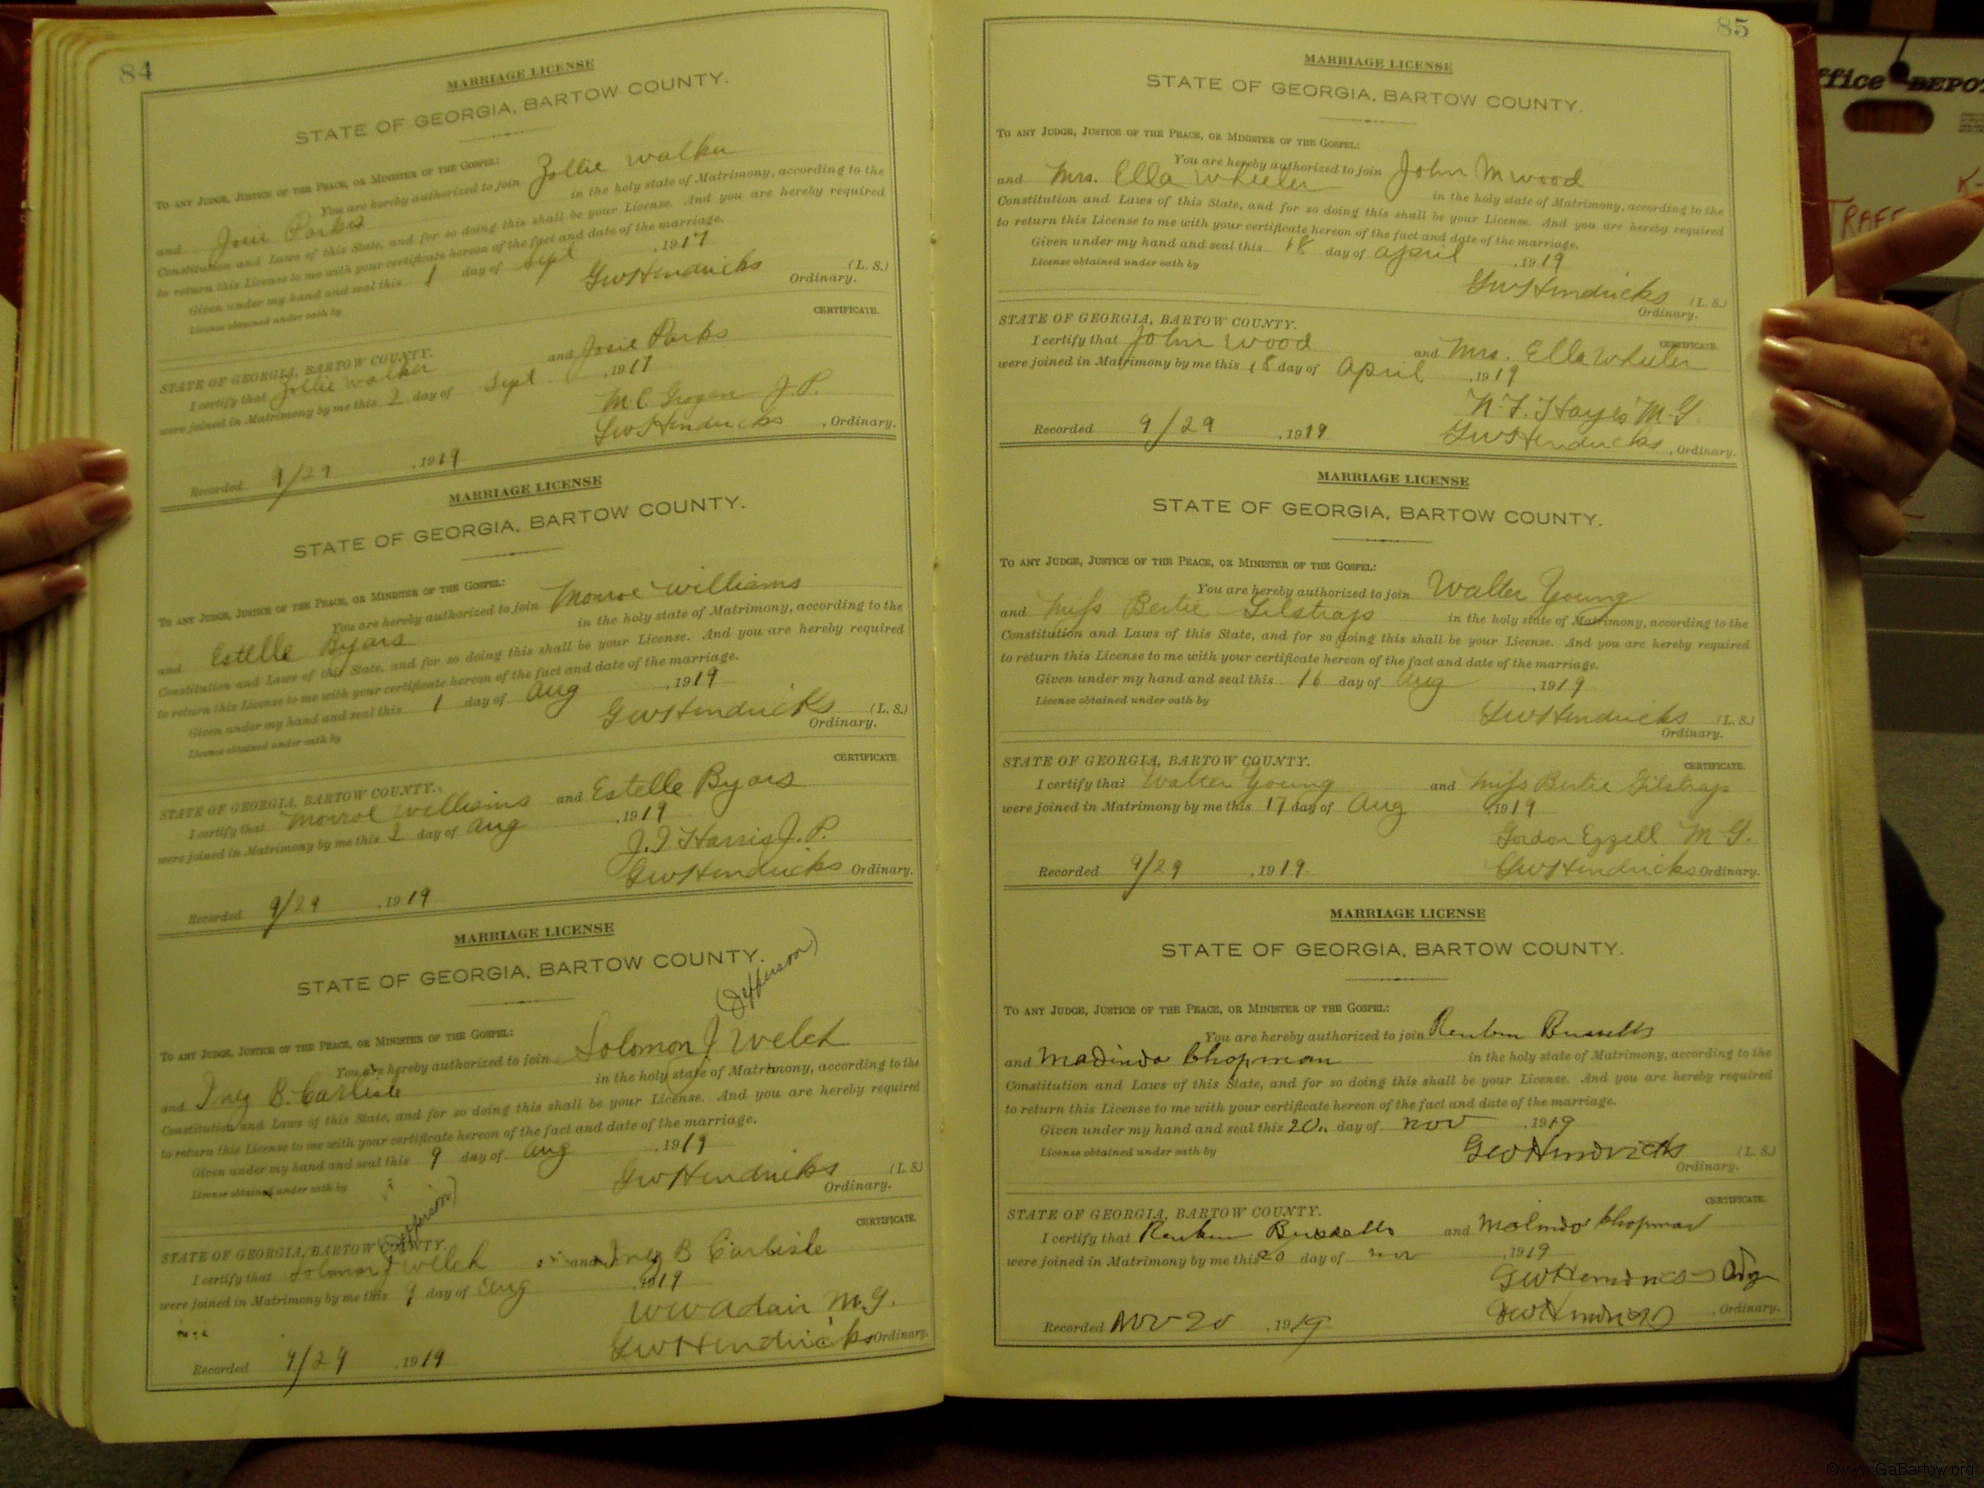 84
MARRIAGE LICENSE
STATE OF GEORGIA, BARTOW COUNTY.
TO ANY JUDGE, JUSTICE OF THE PEACE, OR MINISTER OF THE GOSPEL:
You are hereby authorized to join Zollie Walker
and Josie Parks in the holy state of Matrimony, according to the
Constitution and Laws of this State, and for so doing this shall be your License. And you are hereby required
to return this License to me with your certificate hereon of the fact and date of the marriage.
Given under my hand and seal this 1 day of Sept , 1917
License obtained under oath by
GwHendricks (L. S.)
Ordinary.
CERTIFICATE.
STATE OF GEORGIA, BARTOW COUNTY.
I certify that Zollie walker and Josie Parks
were joined in Matrimony by me this 2 day of Sept. , 1917
M.C. Grogan J.P.
Recorded 9/29 , 1919 GwHendricks , Ordinary.
MARRIAGE LICENSE
STATE OF GEORGIA, BARTOW COUNTY.
TO ANY JUDGE, JUSTICE OF THE PEACE, OR MINISTER OF THE GOSPEL:
You are hereby authorized to join Monroe Williams
and Estelle Byars in the holy state of Matrimony, according to the
Constitution and Laws of this State, and for so doing this shall be your License. And you are hereby required
to return this License to me with your certificate hereon of the fact and date of the marriage.
Given under my hand and seal this 1 day of Aug , 1919
License obtained under oath by
GwHendricks (L. S.)
Ordinary.
CERTIFICATE.
STATE OF GEORGIA, BARTOW COUNTY.
I certify that Monroe Williams and Estelle Byars
were joined in Matrimony by me this 2 day of Aug , 1919
J.T. Harris J.P.
Recorded 9/29 , 1919 GwHendricks Ordinary.
MARRIAGE LICENSE
STATE OF GEORGIA, BARTOW COUNTY.
(Jefferson)
TO ANY JUDGE, JUSTICE OF THE PEACE, OR MINISTER OF THE GOSPEL:
You are hereby authorized to join Solomon J Welch
and Inez B. Carlisle in the holy state of Matrimony, according to the
Constitution and Laws of this State, and for so doing this shall be your License. And you are hereby required
to return this License to me with your certificate hereon of the fact and date of the marriage.
Given under my hand and seal this 9 day of Aug , 1919
License obtained under oath by
GwHendricks (L. S.)
Ordinary.
(Jefferson)
CERTIFICATE.
STATE OF GEORGIA, BARTOW COUNTY.
I certify that Solomon J Welch and Inez B Carlisle
were joined in Matrimony by me this 9 day of Aug , 1919
WW Adair M.G.
Recorded 9/29 , 1919 GwHendricks Ordinary.
85
MARRIAGE LICENSE
STATE OF GEORGIA, BARTOW COUNTY.
TO ANY JUDGE, JUSTICE OF THE PEACE, OR MINISTER OF THE GOSPEL:
You are hereby authorized to join John M Wood
and Mrs. Ella Wheeler in the holy state of Matrimony, according to the
Constitution and Laws of this State, and for so doing this shall be your License. And you are hereby required
to return this License to me with your certificate hereon of the fact and date of the marriage.
Given under my hand and seal this 18 day of April , 1919
License obtained under oath by
GwHendricks (L. S.)
Ordinary.
STATE OF GEORGIA, BARTOW COUNTY.
CERTIFICATE.
I certify that John Wood and Mrs. Ella Wheeler
were joined in Matrimony by me this 18 day of April , 1919
N.F. Hayes M.G.
Recorded 9/29 , 1919 GwHendricks , Ordinary.
MARRIAGE LICENSE
STATE OF GEORGIA, BARTOW COUNTY.
TO ANY JUDGE, JUSTICE OF THE PEACE, OR MINISTER OF THE GOSPEL:
You are hereby authorized to join Walter Young
and Miss Bertie Gilstrap in the holy state of Matrimony, according to the
Constitution and Laws of this State, and for so doing this shall be your License. And you are hereby required
to return this License to me with your certificate hereon of the fact and date of the marriage.
Given under my hand and seal this 16 day of Aug , 1919
License obtained under oath by
GwHendricks (L. S.)
Ordinary.
STATE OF GEORGIA, BARTOW COUNTY.
CERTIFICATE.
I certify that Walter Young and Miss Bertie Gilstrap
were joined in Matrimony by me this 17 day of Aug , 1919
Gordon Ezzell M G.
Recorded 9/29 , 1919. GwHendricks Ordinary.
MARRIAGE LICENSE
STATE OF GEORGIA, BARTOW COUNTY.
TO ANY JUDGE, JUSTICE OF THE PEACE, OR MINISTER OF THE GOSPEL:
You are hereby authorized to join Reuben Bussells
and Madinda Chapman in the holy state of Matrimony, according to the
Constitution and Laws of this State, and for so doing this shall be your License. And you are hereby required
to return this License to me with your certificate hereon of the fact and date of the marriage.
Given under my hand and seal this 20 day of Nov , 1919
License obtained under oath by
GwHendricks (L. S.)
Ordinary.
CERTIFICATE.
STATE OF GEORGIA, BARTOW COUNTY.
I certify that Reuben Bussells and Malinda Chapman
were joined in Matrimony by me this 20 day of Nov , 1919
GwHendricks Ordy
Recorded Nov 20 , 1919 GwHendricks , Ordinary.
ffice DEPOT
TRAFF
K-
©www.GaBartow.org